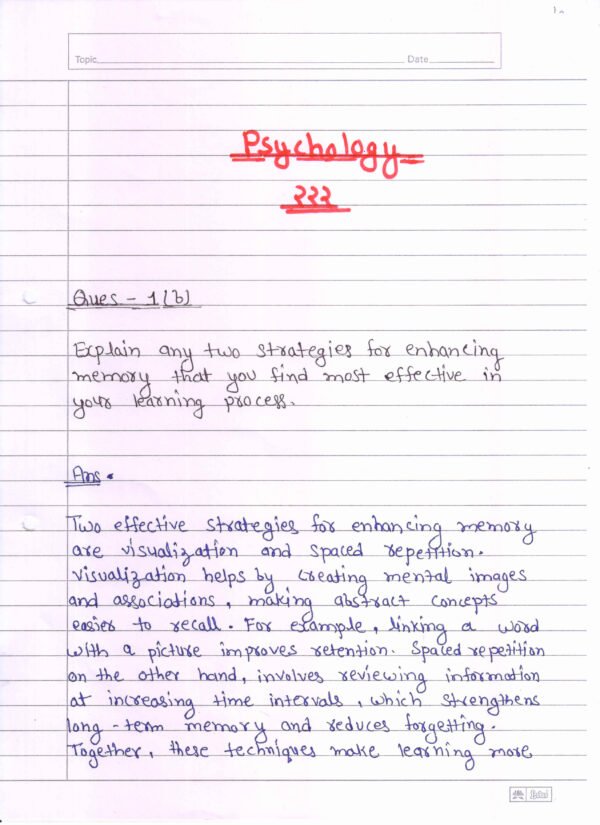 Topic Date
Psychology
२२२
Ques - 1(b)
Explain any two strategies for enhancing
memory that you find most effective in
your learning process.
Ans.
Two effective strategies for enhancing memory
are visualization and spaced repetition.
Visualization helps by creating mental images
and associations, making abstract concepts
easier to recall. For example, linking a word
with a picture improves retention. Spaced repetition
on the other hand, involves reviewing information
at increasing time intervals, which strengthens
long-term memory and reduces forgetting.
Together, these techniques make learning more